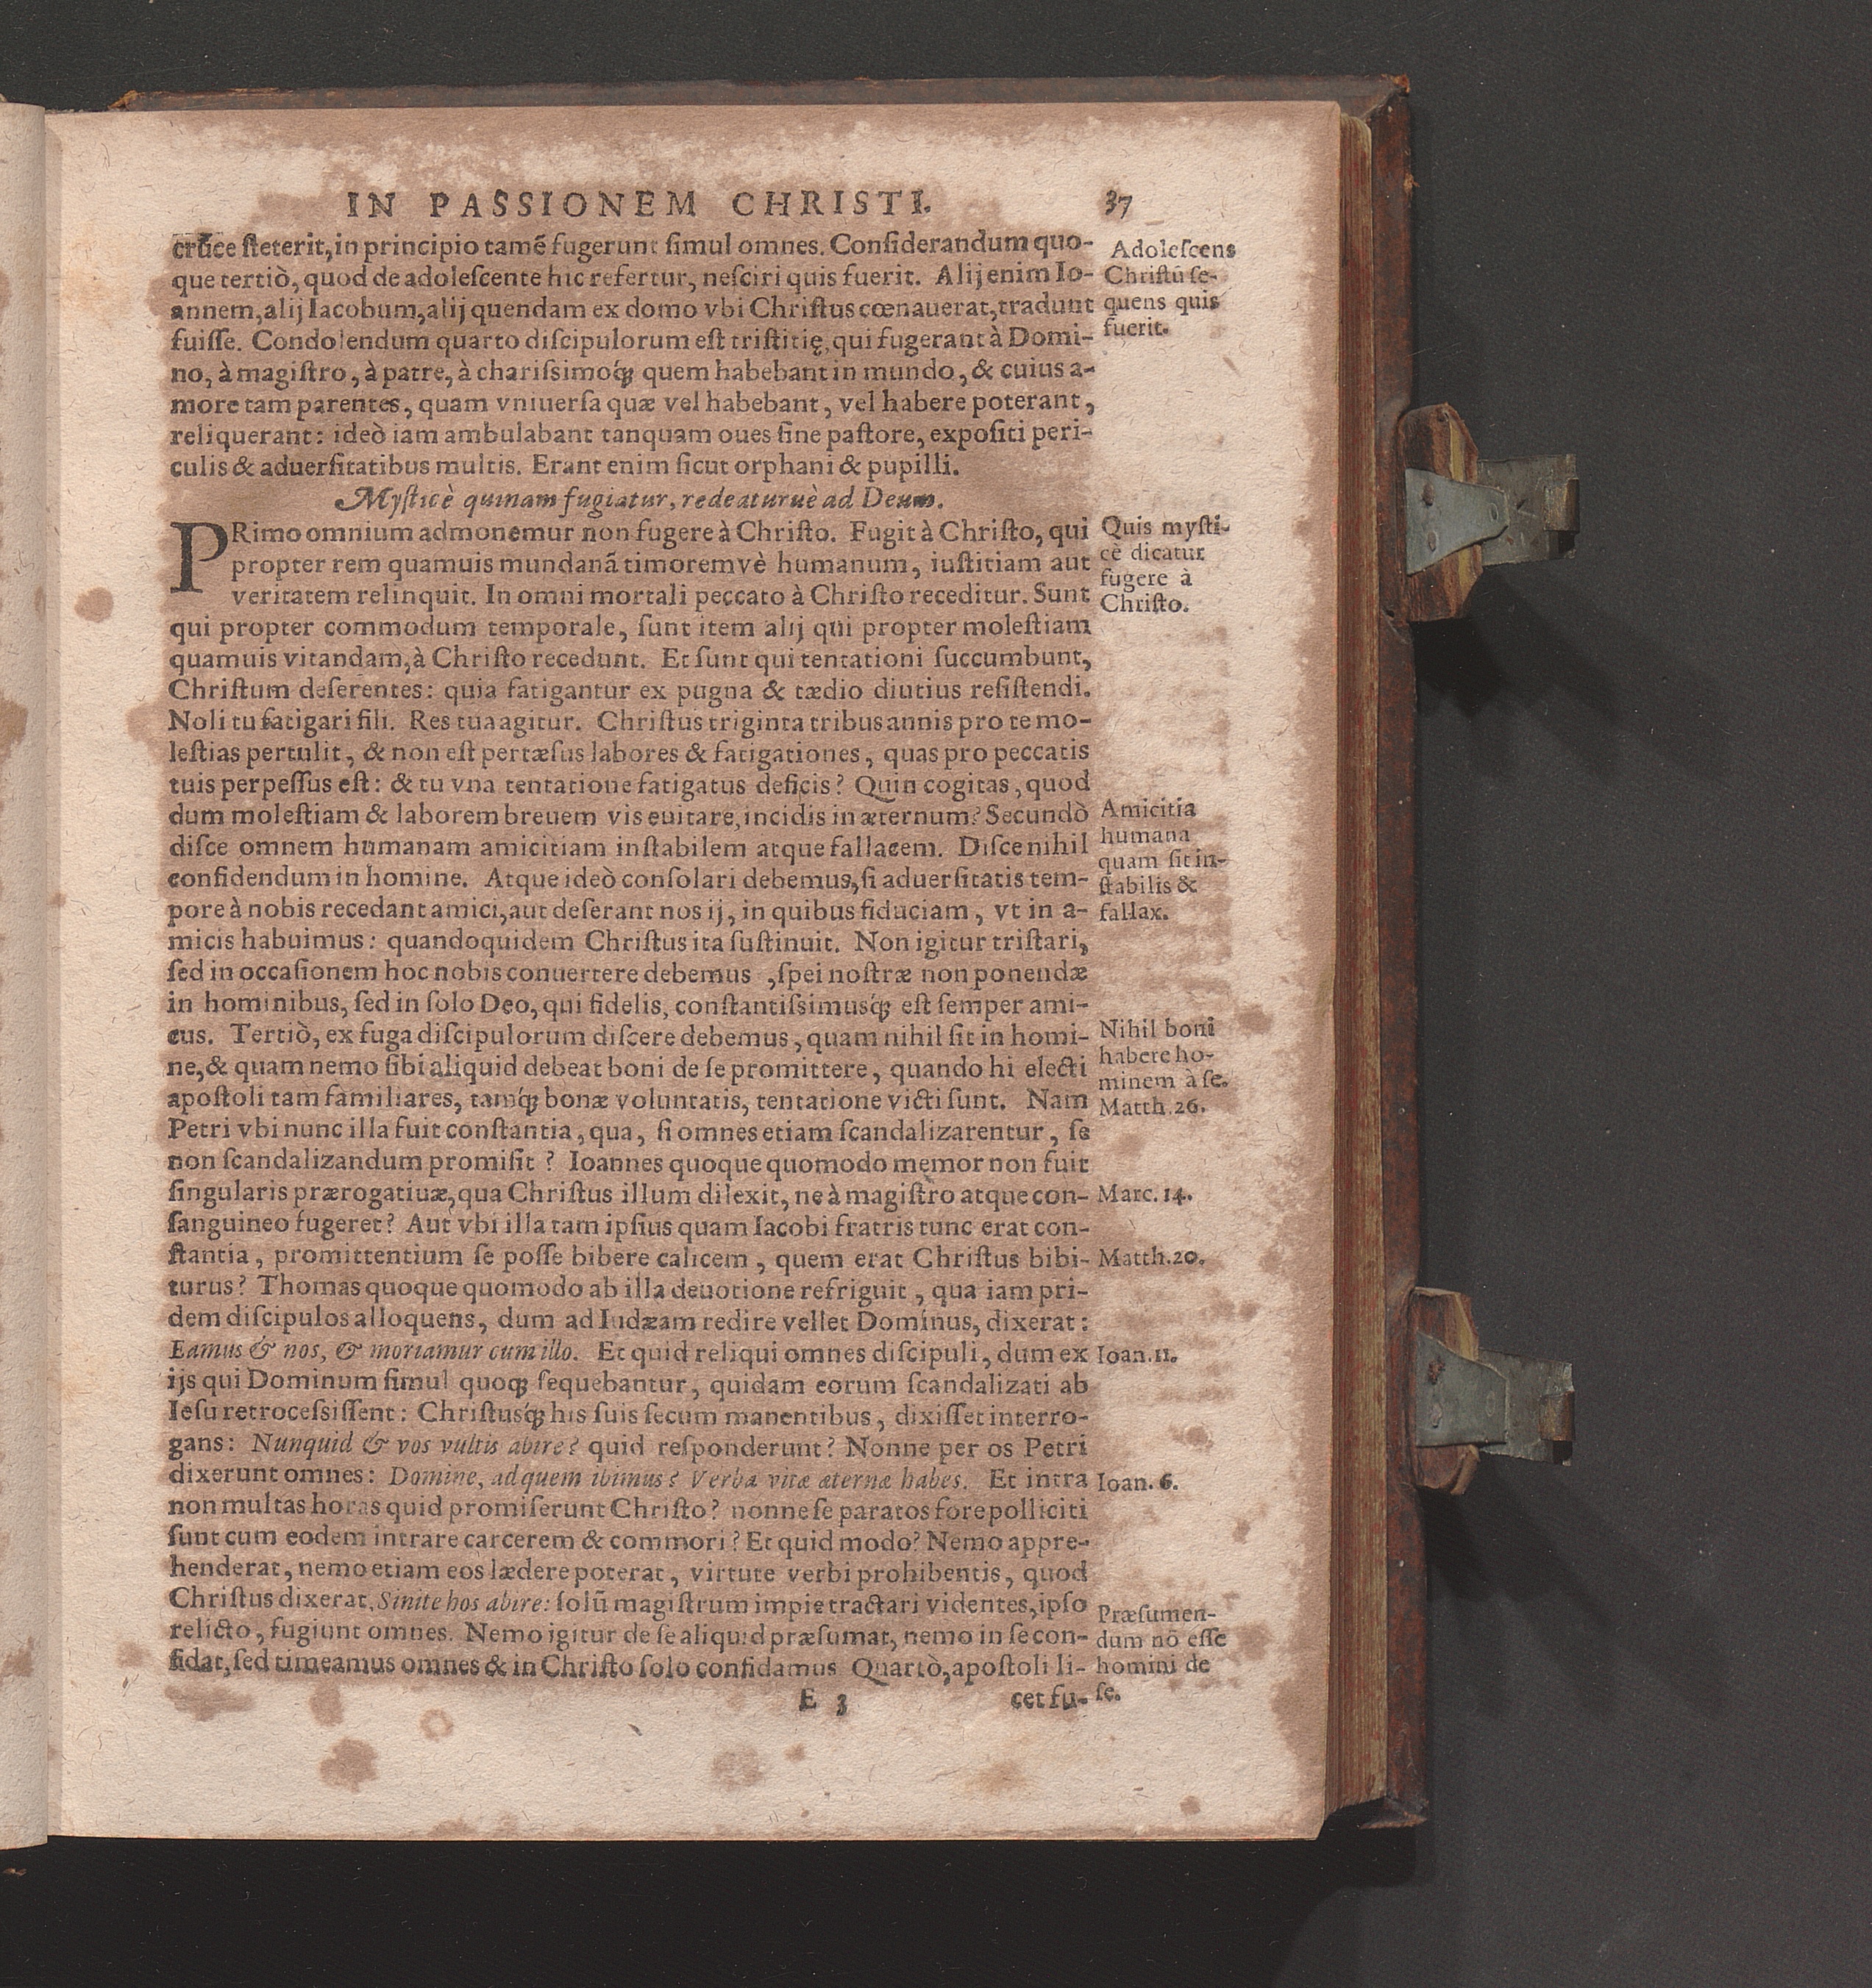 IN PASSIONEM CHRISTI. 37
cruce ſteterit, in principio tamẽ fugerunt ſimul omnes. Conſiderandum quo-
que tertiò, quod de adoleſcente hic refertur, neſciri quis fuerit. Alij enim Io-
annem, alij Iacobum, alij quendam ex domo vbi Chriſtus cœnauerat, tradunt
fuiſſe. Condolendum quarto diſcipulorum eſt triſtitię, qui fugerant à Domi-
no, à magiſtro, à patre, à chariſsimoq́; quem habebant in mundo, & cuius a-
more tam parentes, quam vniuerſa quæ vel habebant, vel habere poterant,
reliquerant: ideò iam ambulabant tanquam oues ſine paſtore, expoſiti peri-
culis & aduerſitatibus multis. Erant enim ſicut orphani & pupilli.
Adoleſcens
Chriſtũ ſe-
quens quis
fuerit.
Myſticè quinam fugiatur, redeaturuè ad Deum.
PRimo omnium admonemur non fugere à Chriſto. Fugit à Chriſto, qui
propter rem quamuis mundanã timoremvè humanum, iuſtitiam aut
veritatem relinquit. In omni mortali peccato à Chriſto receditur. Sunt
qui propter commodum temporale, ſunt item alij qui propter moleſtiam
quamuis vitandam, à Chriſto recedunt. Et ſunt qui tentationi ſuccumbunt,
Chriſtum deſerentes: quia fatigantur ex pugna & tædio diutius reſiſtendi.
Noli tu fatigari fili. Res tua agitur. Chriſtus triginta tribus annis pro te mo-
leſtias pertulit, & non eſt pertæſus labores & fatigationes, quas pro peccatis
tuis perpeſſus eſt: & tu vna tentatione fatigatus deficis? Quin cogitas, quod
dum moleſtiam & laborem breuem vis euitare, incidis in æternum? Secundò
diſce omnem humanam amicitiam inſtabilem atque fallacem. Diſce nihil
confidendum in homine. Atque ideò conſolari debemus, ſi aduerſitatis tem-
pore à nobis recedant amici, aut deſerant nos ij, in quibus fiduciam, vt in a-
micis habuimus: quandoquidem Chriſtus ita ſuſtinuit. Non igitur triſtari,
ſed in occaſionem hoc nobis conuertere debemus, ſpei noſtræ non ponendæ
in hominibus, ſed in ſolo Deo, qui fidelis, conſtantiſsimusq́; eſt ſemper ami-
cus. Tertiò, ex fuga diſcipulorum diſcere debemus, quam nihil ſit in homi-
ne, & quam nemo ſibi aliquid debeat boni de ſe promittere, quando hi electi
apoſtoli tam familiares, tamq́; bonæ voluntatis, tentatione victi ſunt. Nam
Petri vbi nunc illa fuit conſtantia, qua, ſi omnes etiam ſcandalizarentur, ſe
non ſcandalizandum promiſit? Ioannes quoque quomodo memor non fuit
ſingularis prærogatiuæ, qua Chriſtus illum dilexit, ne à magiſtro atque con-
ſanguineo fugeret? Aut vbi illa tam ipſius quam Iacobi fratris tunc erat con-
ſtantia, promittentium ſe poſſe bibere calicem, quem erat Chriſtus bibi-
turus? Thomas quoque quomodo ab illa deuotione refriguit, qua iam pri-
dem diſcipulos alloquens, dum ad Iudæam redire vellet Dominus, dixerat:
Eamus & nos, & moriamur cum illo. Et quid reliqui omnes diſcipuli, dum ex
ijs qui Dominum ſimul quoq; ſequebantur, quidam eorum ſcandalizati ab
Ieſu retroceſsiſſent: Chriſtusq́; his ſuis ſecum manentibus, dixiſſet interro-
gans: Nunquid & vos vultis abire? quid reſponderunt? Nonne per os Petri
dixerunt omnes: Domine, ad quem ibimus? Verba vitæ æternæ habes. Et intra
non multas horas quid promiſerunt Chriſto? nonne ſe paratos fore polliciti
ſunt cum eodem intrare carcerem & commori? Et quid modo? Nemo appre-
henderat, nemo etiam eos lædere poterat, virtute verbi prohibentis, quod
Chriſtus dixerat, Sinite hos abire: ſolũ magiſtrum impie tractari videntes, ipſo
relicto, fugiunt omnes. Nemo igitur de ſe aliquid præſumat, nemo in ſe con-
fidat, ſed timeamus omnes & in Chriſto ſolo confidamus Quartò, apoſtoli li-
E 3 cet fu-
Quis myſti-
cè dicatur
fugere à
Chriſto.
Amicitia
humana
quam ſit in-
ſtabilis &
fallax.
Nihil boni
habere ho-
minem à ſe.
Matth. 26.
Marc. 14.
Matth. 20.
Ioan. 11.
Ioan. 6.
Præſumen-
dum nõ eſſe
homini de
ſe.